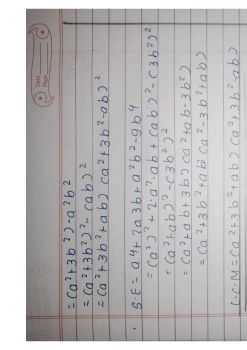 Date
Page
= (a²+3b²)-a²b²
= (a²+3b²)²-(ab)²
= (a²+3b²+ab) (a²+3b²-ab)²
S.E = a4+2a3b+a²b²-9b4
= (a²)²+2.a².ab+(ab)²-(3b²)²
= (a²+ab)²-(3b²)²
= (a²+ab+3b) (a²+ab-3b²)
= (a²+3b²+ab) (a²-3b²+ab)
L.C.M = (a²+3b²+ab) (a²+3b²-ab)